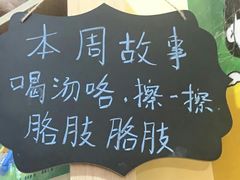 本周故事
喝汤咯,擦一擦
胳肢胳肢